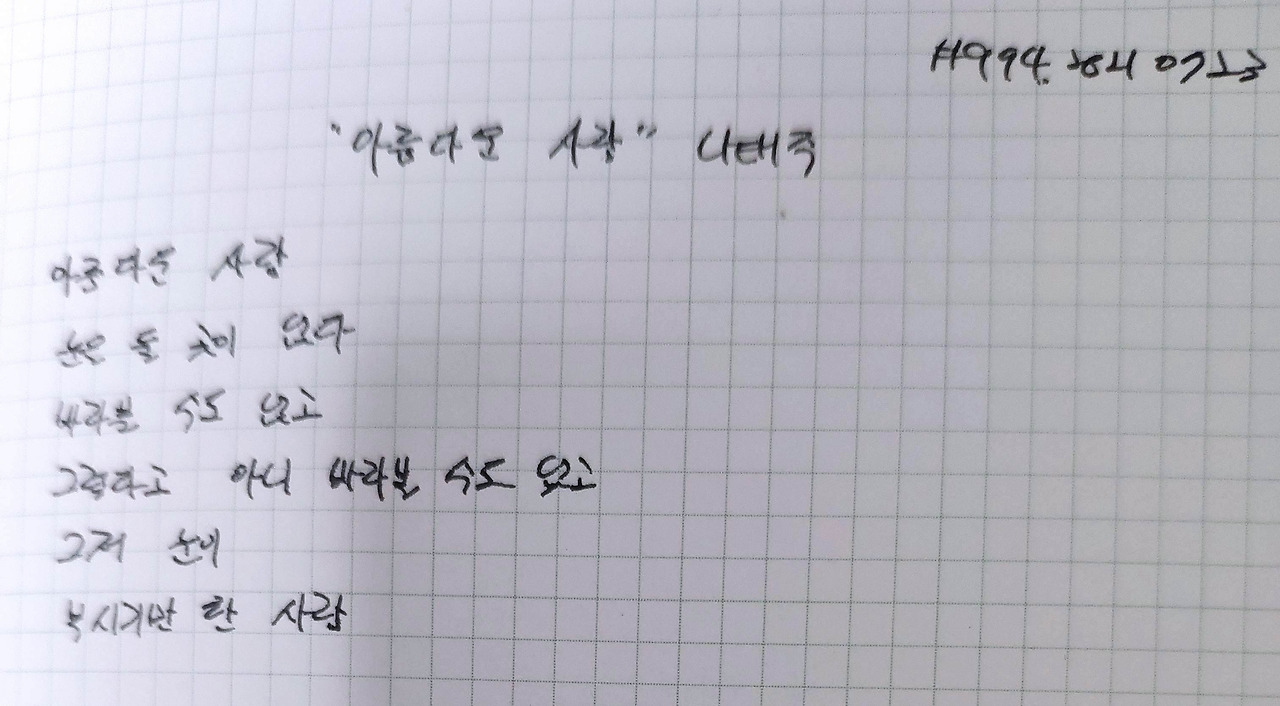 "아름다운 사람" 나태주
아름다운 사람
눈을 둘 곳이 없다
바라볼 수도 없고
그렇다고 아니 바라볼 수도 없고
그저 눈이
부시기만 한 사람